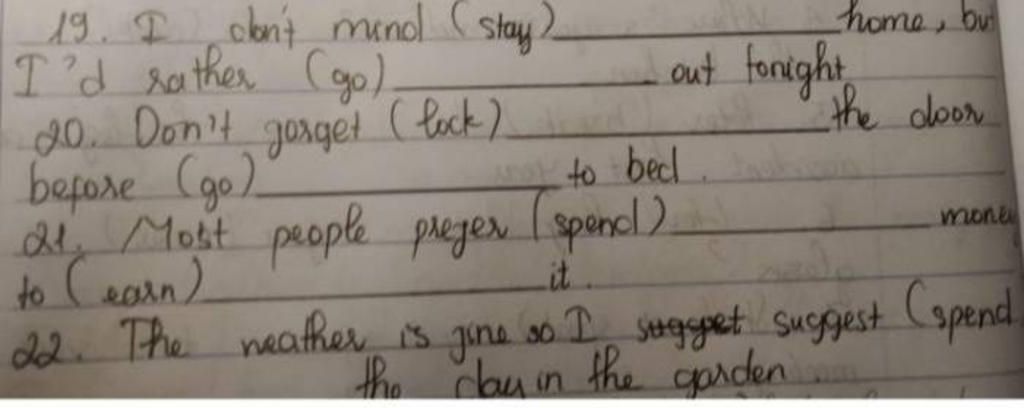 19. I don't mind (stay)__________home, bu
I'd rather (go)__________out tonight
20. Don't forget (lock)__________the door
before (go)__________to bed.
21. Most people prefer (spend)__________money
to (earn)__________it.
22. The weather is fine so I suggest (spend
the day in the garden